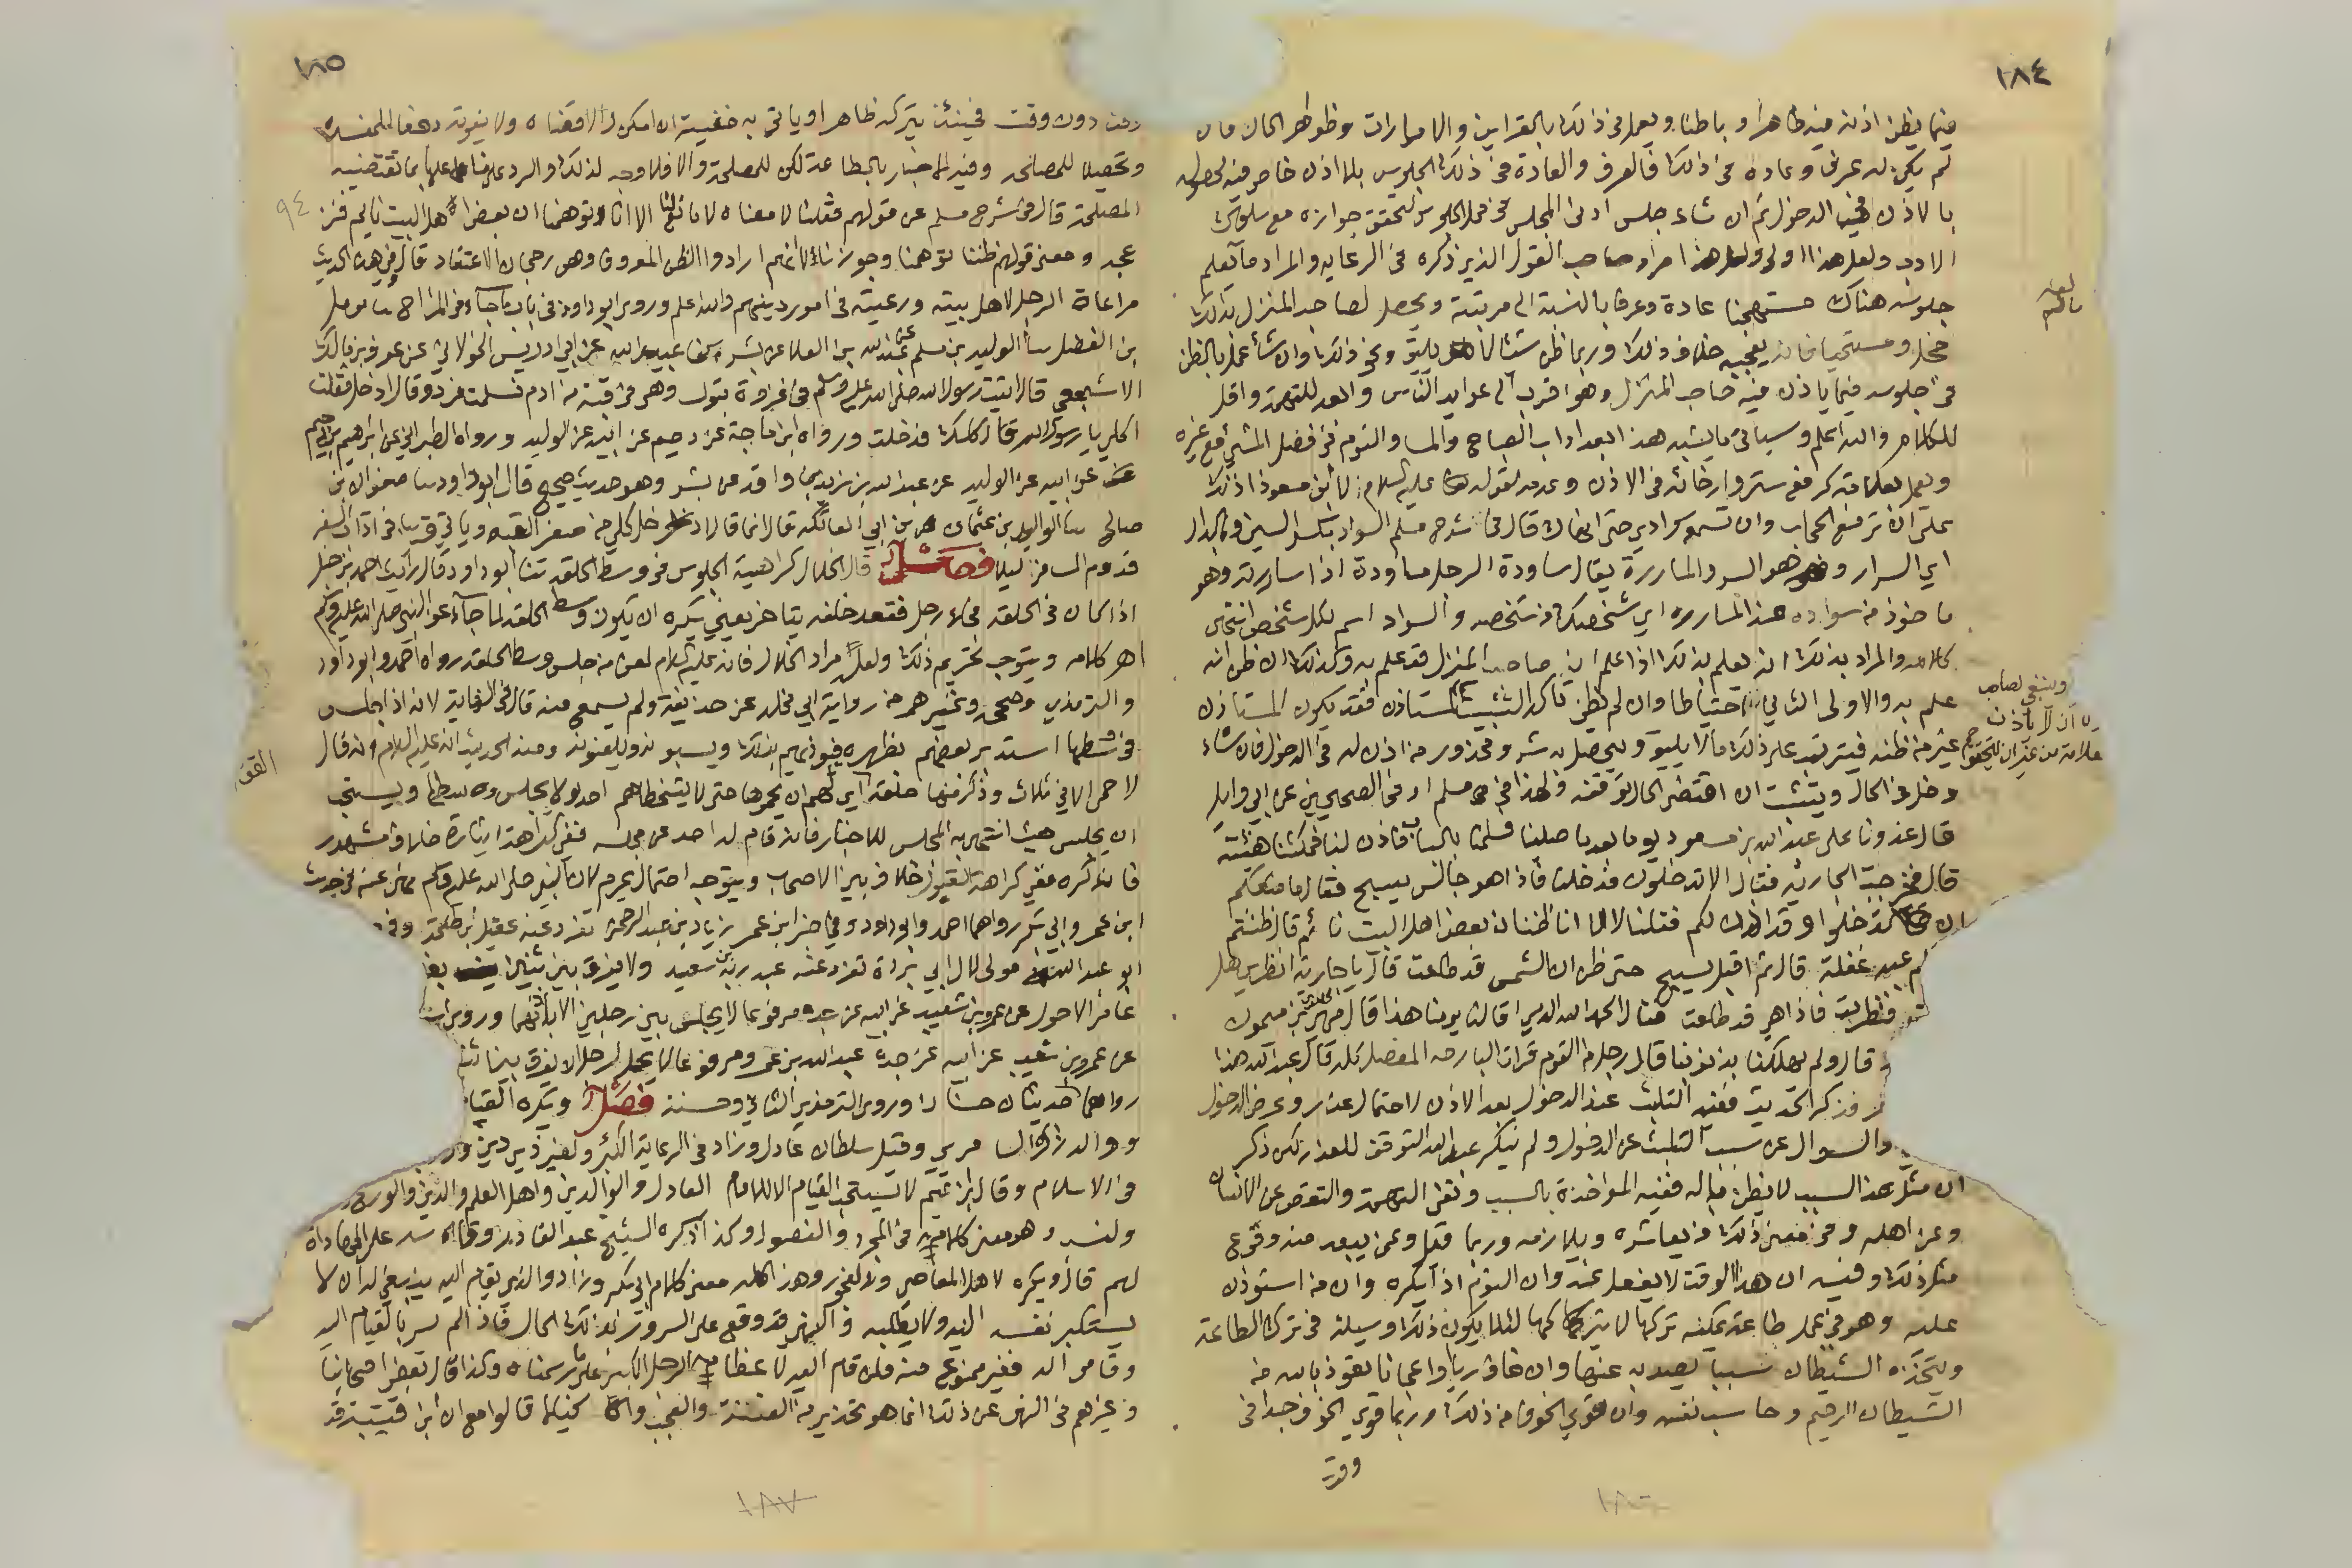 ١٨٤
فيما يظن اذنه فيه ظاهرا وباطنا ويعمل في ذلك بالقراين والامارات وظواهر الحال فان
لم يكن له عرف وعادة في ذلك فالعرف والعادة في ذلك الجلوس بلا اذن خاص فيه لحصوله
بالاذن في الدخول ثم ان شاء جلس ادنى المجلس في محل الجلوس لتحقق جوازه مع سلوك
الادب ولعل هذا اولى ولعل هذا مراد صاحب القول الذي ذكره في الرعاية والمراد ما لم يعلم
جلوسه هناك مستهجنا عادة وعرفا بالنسبة الى مرتبته ويحصل لصاحب المنزل بذلك
خجل واستحيا فانه يعجبه خلاف ذلك وربما ظن شيئا لا يليق ونحو ذلك وان شاء عمل بالظن
في جلوسه فيما ياذن فيه صاحب المنزل وهو اقرب الى عوايد الناس وابعد للتهمة واقل
للكلام والله اعلم وسياتي ما يشبه هذا بعد اداب الصباح والمسا والنوم في فصل المشي مع غيره
ويعمل بعلامة كرفع ستر وارخائه في الاذن وعدمه لقوله عليه السلام لابن مسعود اذنك
علي ان ترفع الحجاب وان تسمع سوادي حتى انهاك قال في شرح مسلم السواد بكسر السين وبالدال
اي السرار وهو السر والمساررة يقال ساودت الرجل مساودة اذا ساررته وهو
ماخوذ من سواده عند المساررة اي شخصك من شخصه والسواد اسم لكل شخص انتهى
كلامه والمراد بذلك انه يعلم بذلك اذا علم ان صاحب المنزل قد علم به وكذلك ان ظن انه
علم به والاولى الثاني احتياطا وان لم يظن تاكد التثبت للمستاذن فقد يكون المستاذن
غير من ظنه فيترتب على ذلك ما لا يليق ويحصل به شر ومحذور من اذن له في الدخول فان شاء
دخل في الحال ويتثبت ان اقتضى الحال توقفه ولهذا في مسلم او في الصحيحين عن ابي وايل
قال غدونا على عبد الله بن مسعود يوما بعد ما صلينا فسلمنا بالباب فاذن لنا فمكثنا هنية
قال فخرجت الجارية فقال الا تدخلون فدخلنا فاذا هو جالس يسبح فقال ما منعكم
ان تدخلوا وقد اذن لكم فقلنا لا الا انا ظننا ان بعض اهل البيت نائم قال ظننتم
ام عبد غفلة قال ثم اقبل يسبح حتى ظن ان الشمس قد طلعت قال يا جارية انظري هل
فنظرت فاذا هي قد طلعت فقال الحمد لله الذي اقالنا يومنا هذا قال مهدي بن ميمون
قال ولم يهلكنا بذنوبنا قال رجل من القوم قرات البارحة المفصل كله قال عبد الله هذا
وذكر الحديث ففيه التلبث عند الدخول بعد الاذن لاحتمال عذر وعرض الدخول
والسوال عن سبب التلبث عن الدخول ولم ينكر عبد الله التوقف للعذر لكن ذكر
ان مثل هذا السبب لا يظن فاله ففيه المواخذة بالسبب ونفي التهمة والتعرض عن الانسان
وعن اهله وفي معنى ذلك من يعاشره ويلازمه وربما قيل وعمن يبعد منه وقوع
مثل ذلك وفيه ان هذا الوقت لا يغفل عنه وان النوم اذا يكره وان من استوذن
عليه وهو في عمل طاعة يمكنه تركها لا يتركها لئلا يكون ذلك وسيلة في ترك الطاعة
ويتخذه الشيطان سببا يصد به عنها وان خاف ريا واعجابا تعوذ بالله من
الشيطان الرجيم وحاسب نفسه وان قوي الخوف من ذلك وربما قوي الخوف جدا في
وقت
لعله
ما لم
وينبغي لصاحب
ان لا ياذن
علامة من غير ان يتحقق
١٨٥
وقت دون وقت فحينئذ يتركه ظاهرا وياتي به خفية ان امكن والا قضاه ولا يفوته دفعا للمفسدة
وتحصيلا للمصالح وفيه الاخبار بالطاعة لكن للمصلحة والا فلا وجه لذلك والرد على فاعلها بما تقتضيه
المصلحة قال في شرح مسلم عن قولهم فقلنا لا معناه لا مانع لنا الا انا توهمنا ان بعض اهل البيت نائم فنز
عجه ومعنى قولهم ظننا توهمنا وجوزنا لا انهم ارادوا الظن المعروف وهو رجحان الاعتقاد قال وفي هذا الحديث
مراعاة الرجل لاهل بيته ورعيته في امور دينهم والله اعلم وروى ابو داود في باب ما جاء في المزاح ثنا مومل
بن الفضل ثنا الوليد بن مسلم عن عبد الله بن العلا عن بسر بن عبيد الله عن ابي ادريس الخولاني عن عوف بن مالك
الاشجعي قال اتيت رسول الله صلى الله عليه وسلم في غزوة تبوك وهو في قبة من ادم فسلمت فرد وقال ادخل فقلت
اكلي يا رسول الله قال كلك فدخلت ورواه ابن ماجة عن دحيم عن ابيه عن الوليد ورواه الطبراني عن ابراهيم بن دحيم
عن ابيه عن الوليد عن عبد الله بن زيد بن واقد عن بسر وهو حديث صحيح قال ابو داود ثنا صفوان بن
صالح ثنا الوليد بن عثمان بن ابي العاتكة قال انما قال ادخل كلي من صغر القبه وياتي قريبا في اداب السفر
قدوم المسافر ليلا فصل قال الخلال كراهية الجلوس في وسط الحلقة ثنا ابو داود قال رايت احمد بن حنبل
اذا كان في الحلقة فجاء رجل فقعد خلفه يتاخر يعني يكره ان يكون وسط الحلقة لما جاء عن النبي صلى الله عليه وسلم
اهر كلامه ويتوجه تحريم ذلك ولعله مراد الخلال فانه عليه السلام لعن من جلس وسط الحلقة رواه احمد وابو داود
والترمذي وصححه وغيرهم من رواية ابي مجلز عن حذيفة ولم يسمع منه قال في النهاية لانه اذا جلس
في وسطها استدبر بعضهم بظهره فيوذيهم بذلك ويسبونه ويلعنونه ومنه الحديث انه عليه السلام انه قال
لا حمى الا في ثلاث وذكر منها حلقة اي لهم ان يحموها حتى لا يتخطاهم احد ولا يجلس وسطها ويستحب
ان يجلس حيث انتهى به المجلس للاخبار فانه قام له احد عن مجلسه ففي كراهة ايثاره خلاف مشهور
فان كره ففي كراهة القبول خلاف بين الاصحاب ويتوجه احتمال يحرم لان النبي صلى الله عليه وسلم نهى عنه في حديث
ابن عمر وابي بكر رواهما احمد وابو داود وفي خبر ابن عمر زياد بن عبد الرحمن تفرد عنه عقيل بن طلحة وفي
ابو عبد الله مولى لال ابي بردة تفرد عنه عبد ربه بن سعيد ولا يفرق بين اثنين بغير
عامر الاحول عن عمرو بن شعيب عن ابيه عن جده مرفوعا لا يجلس بين رجلين الا باذنهما وروى
عن عمرو بن شعيب عن ابيه عن جده عبد الله بن عمرو مرفوعا لا يحل لرجل ان يفرق بين اثنين
رواهما احمد وروى الترمذي الثاني وحسنه فصل ويكره القيا
ووالد زاد السامري وقيل سلطان عادل وزاد في الرعاية الكبرى ولغير ذي دين و
في الاسلام وقال ابن تميم لا يستحب القيام الا للامام العادل والوالدين واهل العلم والدين والورع
ولنسب وهو معنى كلامه في المجرد والفصول وكذا ذكره الشيخ عبد القادر وقاسه على المهاداة
لهم قال ويكره لاهل المعاصي والفجور وهذا كله معنى كلام ابي بكر وزاد والذي يقام اليه ينبغي له ان لا
يستكبر نفسه اليه ولا يطلبه والنهي قد وقع على السرور بذلك الحال فاذا لم يسر بالقيام اليه
وقاموا اليه فغير ممنوع منه فلن قام اليه لاعظامه الرجل الكبير على ما رسمناه وكذا قال بعض اصحابنا
وغيرهم في النهي عن ذلك انما هو تحذير من الفتنة والعجب والخيلا قالوا مع ان ابن قتيبة قد
٩٤
١٨٧